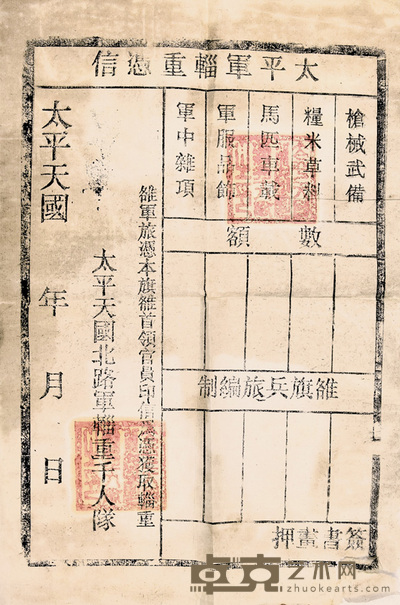 太平軍輜重憑信
槍械武備
糧米草料
馬匹車載
軍服品飾
軍中雜項
數額
雒旗兵旅編制
簽書畫押
雒軍旅憑本旗雒首領官員印信為憑獲取輜重
太平天國北路軍輜重千人隊
太平天國 年 月 日
卓克艺术网
www.zhuokearts.com